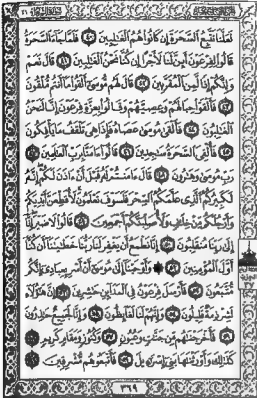 لَعَلَّنَا نَتَّبِعُ السَّحَرَةَ إِن كَانُوا هُمُ الْغَالِبِينَ ﴿٤٠﴾ فَلَمَّا جَاءَ السَّحَرَةُ
قَالُوا لِفِرْعَوْنَ أَئِنَّ لَنَا لَأَجْرًا إِن كُنَّا نَحْنُ الْغَالِبِينَ ﴿٤١﴾ قَالَ نَعَمْ
وَإِنَّكُمْ إِذًا لَّمِنَ الْمُقَرَّبِينَ ﴿٤٢﴾ قَالَ لَهُم مُّوسَىٰ أَلْقُوا مَا أَنتُم مُّلْقُونَ
﴿٤٣﴾ فَأَلْقَوْا حِبَالَهُمْ وَعِصِيَّهُمْ وَقَالُوا بِعِزَّةِ فِرْعَوْنَ إِنَّا لَنَحْنُ
الْغَالِبُونَ ﴿٤٤﴾ فَأَلْقَىٰ مُوسَىٰ عَصَاهُ فَإِذَا هِيَ تَلْقَفُ مَا يَأْفِكُونَ
﴿٤٥﴾ فَأُلْقِيَ السَّحَرَةُ سَاجِدِينَ ﴿٤٦﴾ قَالُوا آمَنَّا بِرَبِّ الْعَالَمِينَ ﴿٤٧﴾
رَبِّ مُوسَىٰ وَهَارُونَ ﴿٤٨﴾ قَالَ آمَنتُمْ لَهُ قَبْلَ أَنْ آذَنَ لَكُمْ إِنَّهُ
لَكَبِيرُكُمُ الَّذِي عَلَّمَكُمُ السِّحْرَ فَلَسَوْفَ تَعْلَمُونَ لَأُقَطِّعَنَّ أَيْدِيَكُمْ
وَأَرْجُلَكُم مِّنْ خِلَافٍ وَلَأُصَلِّبَنَّكُمْ أَجْمَعِينَ ﴿٤٩﴾ قَالُوا لَا ضَيْرَ إِنَّا
إِلَىٰ رَبِّنَا مُنقَلِبُونَ ﴿٥٠﴾ إِنَّا نَطْمَعُ أَن يَغْفِرَ لَنَا رَبُّنَا خَطَايَانَا أَن كُنَّا
أَوَّلَ الْمُؤْمِنِينَ ﴿٥١﴾ وَأَوْحَيْنَا إِلَىٰ مُوسَىٰ أَنْ أَسْرِ بِعِبَادِي إِنَّكُم
مُّتَّبَعُونَ ﴿٥٢﴾ فَأَرْسَلَ فِرْعَوْنُ فِي الْمَدَائِنِ حَاشِرِينَ ﴿٥٣﴾ إِنَّ هَٰؤُلَاءِ
لَشِرْذِمَةٌ قَلِيلُونَ ﴿٥٤﴾ وَإِنَّهُمْ لَنَا لَغَائِظُونَ ﴿٥٥﴾ وَإِنَّا لَجَمِيعٌ حَاذِرُونَ
﴿٥٦﴾ فَأَخْرَجْنَاهُم مِّن جَنَّاتٍ وَعُيُونٍ ﴿٥٧﴾ وَكُنُوزٍ وَمَقَامٍ كَرِيمٍ ﴿٥٨﴾
كَذَٰلِكَ وَأَوْرَثْنَاهَا بَنِي إِسْرَائِيلَ ﴿٥٩﴾ فَأَتْبَعُوهُم مُّشْرِقِينَ ﴿٦٠﴾
٣٦٩